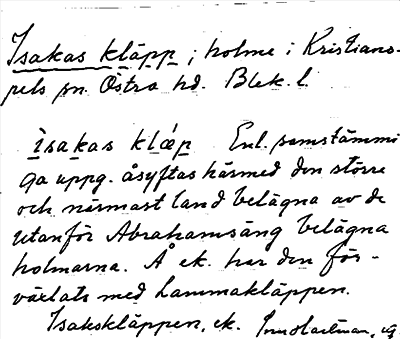 Isakas kläpp, holme i Kristiano-
pels sn. Östra hd. Blek. l.
ìsakas klǽp Enl. samstämmi
ga uppg. åsyftas härmed den större
och närmast land belägna av de
utanför Abrahamsäng belägna
holmarna. Å ek. har den för-
växlats med Lammakläppen.
Isakskläppen, ek.